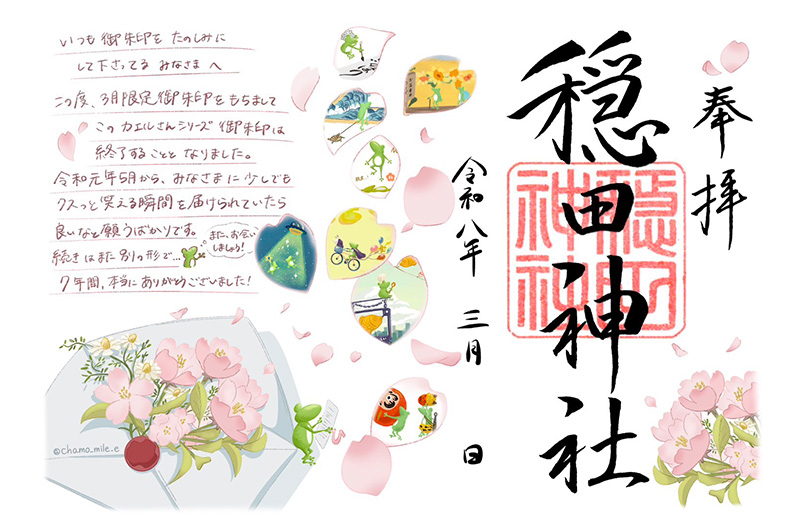 奉拝
穏田神社
穏田
神社
令和八年 三月 日
いつも御朱印をたのしみに
して下さってる みなさまへ
この度、3月限定御朱印をもちまして
このカエルさんシリーズ御朱印は
終了することと なりました。
令和元年5月から、みなさまに少しでも
クスっと笑える瞬間を届けられていたら
良いなと願うばかりです。
続きはまた別の形で…
7年間、本当にありがとうございました!
また、お会い
しましょう!
@chamo.mile.e